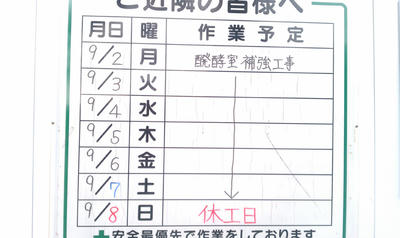 ご近隣の皆様へ
月日 曜 作業予定
9/2 月 醗酵室補強工事
9/3 火
9/4 水
9/5 木
9/6 金
9/7 土
9/8 日 休工日
安全最優先で作業をしております